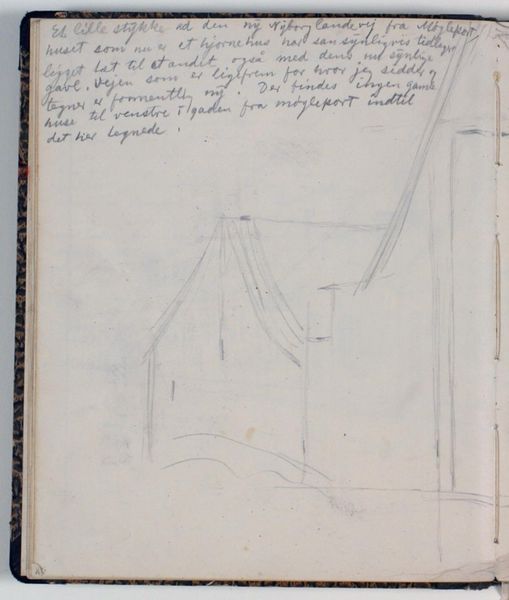 Et lille stykke ud den ny Nyborg landevej fra Mølleport
huset som nu er et hjørnehus har sandsynligvis tidligere
ligget tæt til standet også med dens nu synlige
gavl. Vejen som er ligefrem for hvor jeg sidder og
tegner er formentlig ny. Der findes ingen gamle
huse til venstre i gaden fra mølleport indtil
det her tegnede.